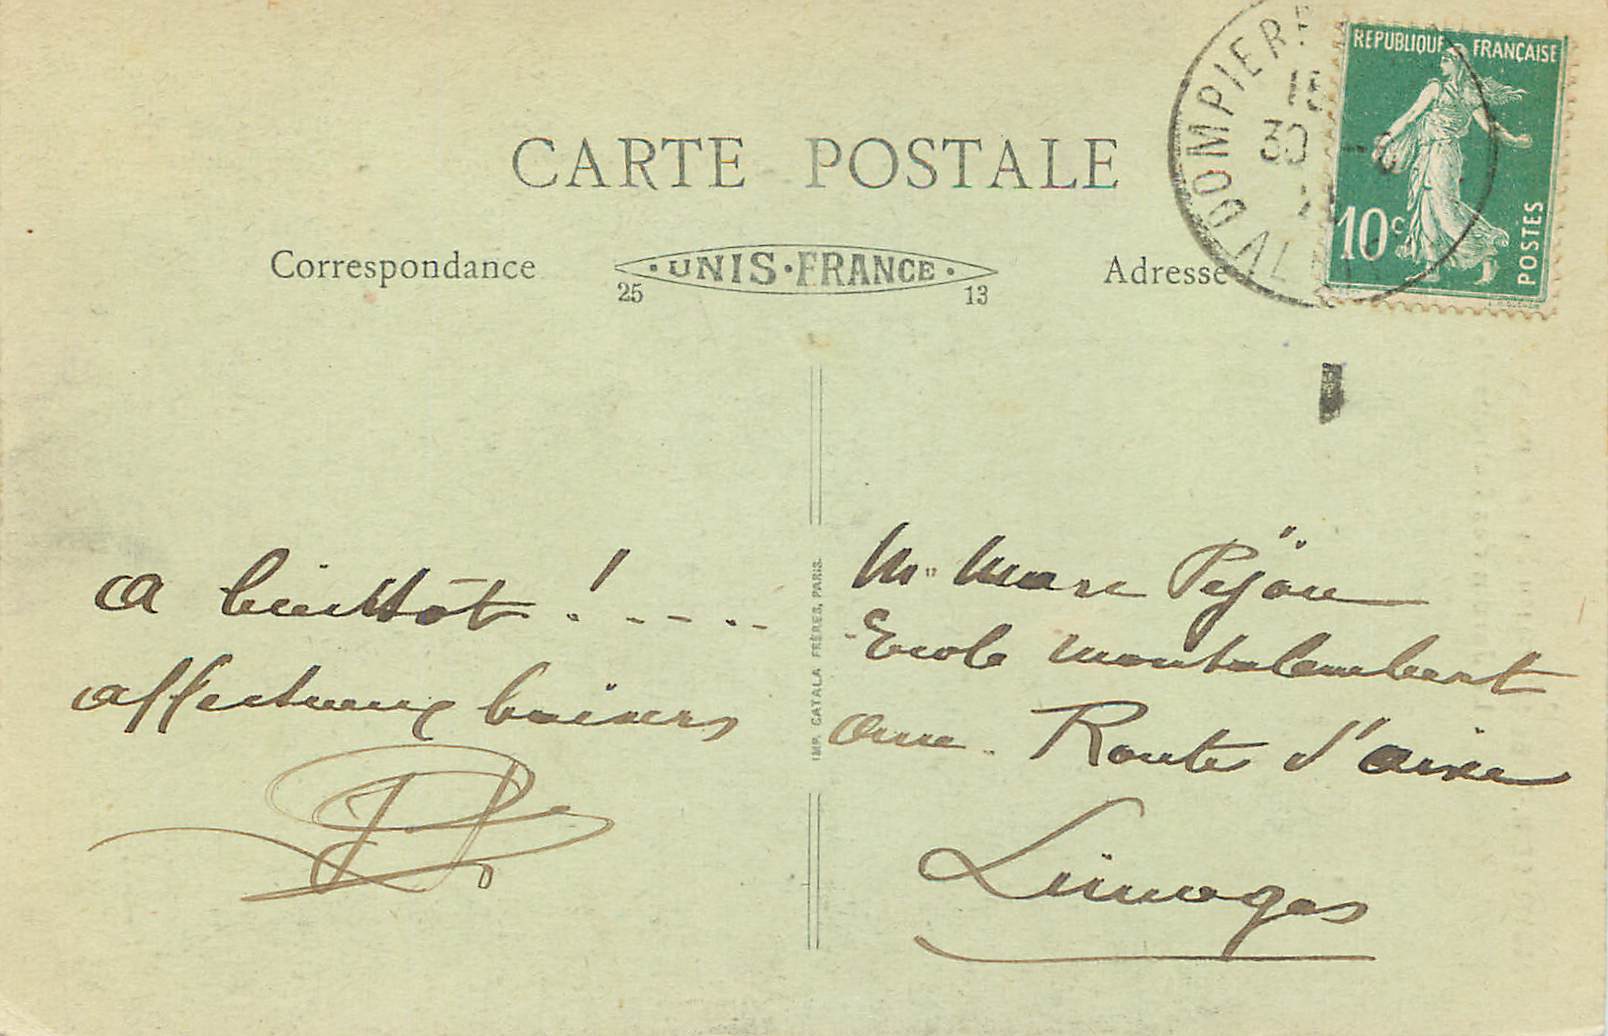 REPUBLIQUE FRANÇAISE
10c
POSTES
DOMPIERRE
30
CARTE POSTALE
Correspondance
UNIS·FRANCE
25 13
Adresse
A bientôt ! . . . . .
affectueux baisers
IMP. CATALA FRÈRES, PARIS.
M. Marc
Ecole Montalembert
Route d'aixe
Limoges